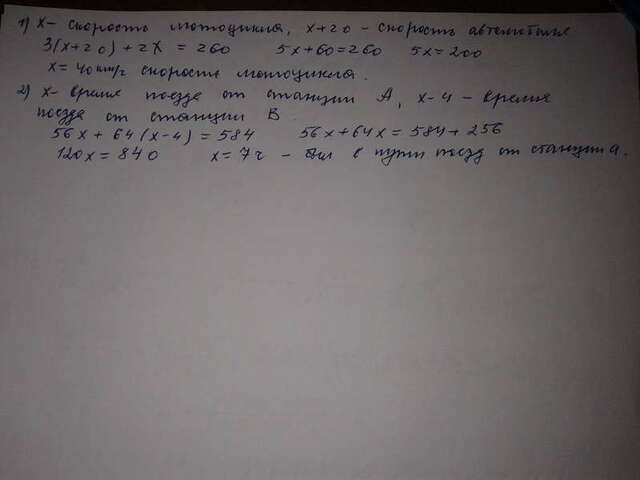 1) x - скорость мотоцикла, x+20 - скорость автомобиля
3(x+20)+2x = 260 5x+60=260 5x=200
x=40км/ч скорость мотоцикла.
2) x - время поезда от станции A, x-4 - время
поезда от станции B
56x + 64(x-4) = 584 56x+64x = 584+256
120x = 840 x = 7ч - был в пути поезд от станции A.